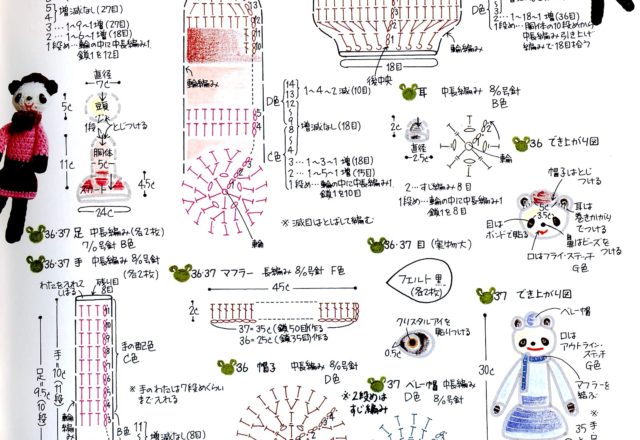 5 増減なし(27目)
3 … 1〜9〜1増(27目)
2 … 1〜6〜1増(18目)
1段め…輪の中に中長編み1,
鎖1を12目
直径
7c
5c
頭
1段
とじつける
11c
胴体
5c
4.5c
24c
36・37 足 中長編み(各2枚)
7/0号針 B色
36・37 手 中長編み 8/0号針
(各2枚)
わたを入れて
しぼる
残り目
8目
手の配色
C色
手=10c(11段)
足=9.5c(10段)
輪編み
※手のわたは7段めぐらい
まで入れる
B色
増減なし(8目)
13
輪編み
D色
C色
14
13
12
9
8
5
4
1〜4〜2減(10目)
増減なし(18目)
3 … 1〜3〜1増(18目)
2 … 1〜5〜1増(15目)
1段め…輪の中に中長編み1,
鎖1を10目
輪
※減目はとばして編む
36・37 マフラー 長編み 8/0号針 F色
45c
2c
37=35c(鎖50目作る)
36=25c(鎖35目作る)
36 帽子 中長編み 8/0号針
D色
※2段めは
すじ編み
D色
輪編み
後中央
18目
2 … 1〜18〜1増(36目)
1段め…胴体の10段めから
中長編み引き上げ
編みで18目拾う
耳 中長編み 8/0号針
B色
2c
直径
2.5c
輪
2 … すじ編み8目
1段め…輪の中に中長編み1,
鎖1を8目
36・37 目(実物大)
フェルト 黒
(各2枚)
クリスタルアイを
貼りつける
0.5c
37 ベレー帽 中長編み
D色 8/0号針
36 でき上がり図
帽子はとじ
つける
5c
3.5c
耳は
巻きかがり
でつける
目は
ボンドで貼る
鼻はビーズを
つける
口はフライ・ステッチ
G色
37 でき上がり図
ベレー帽
口は
アウトライン・
ステッチ
G色
30c
マフラーを
結ぶ